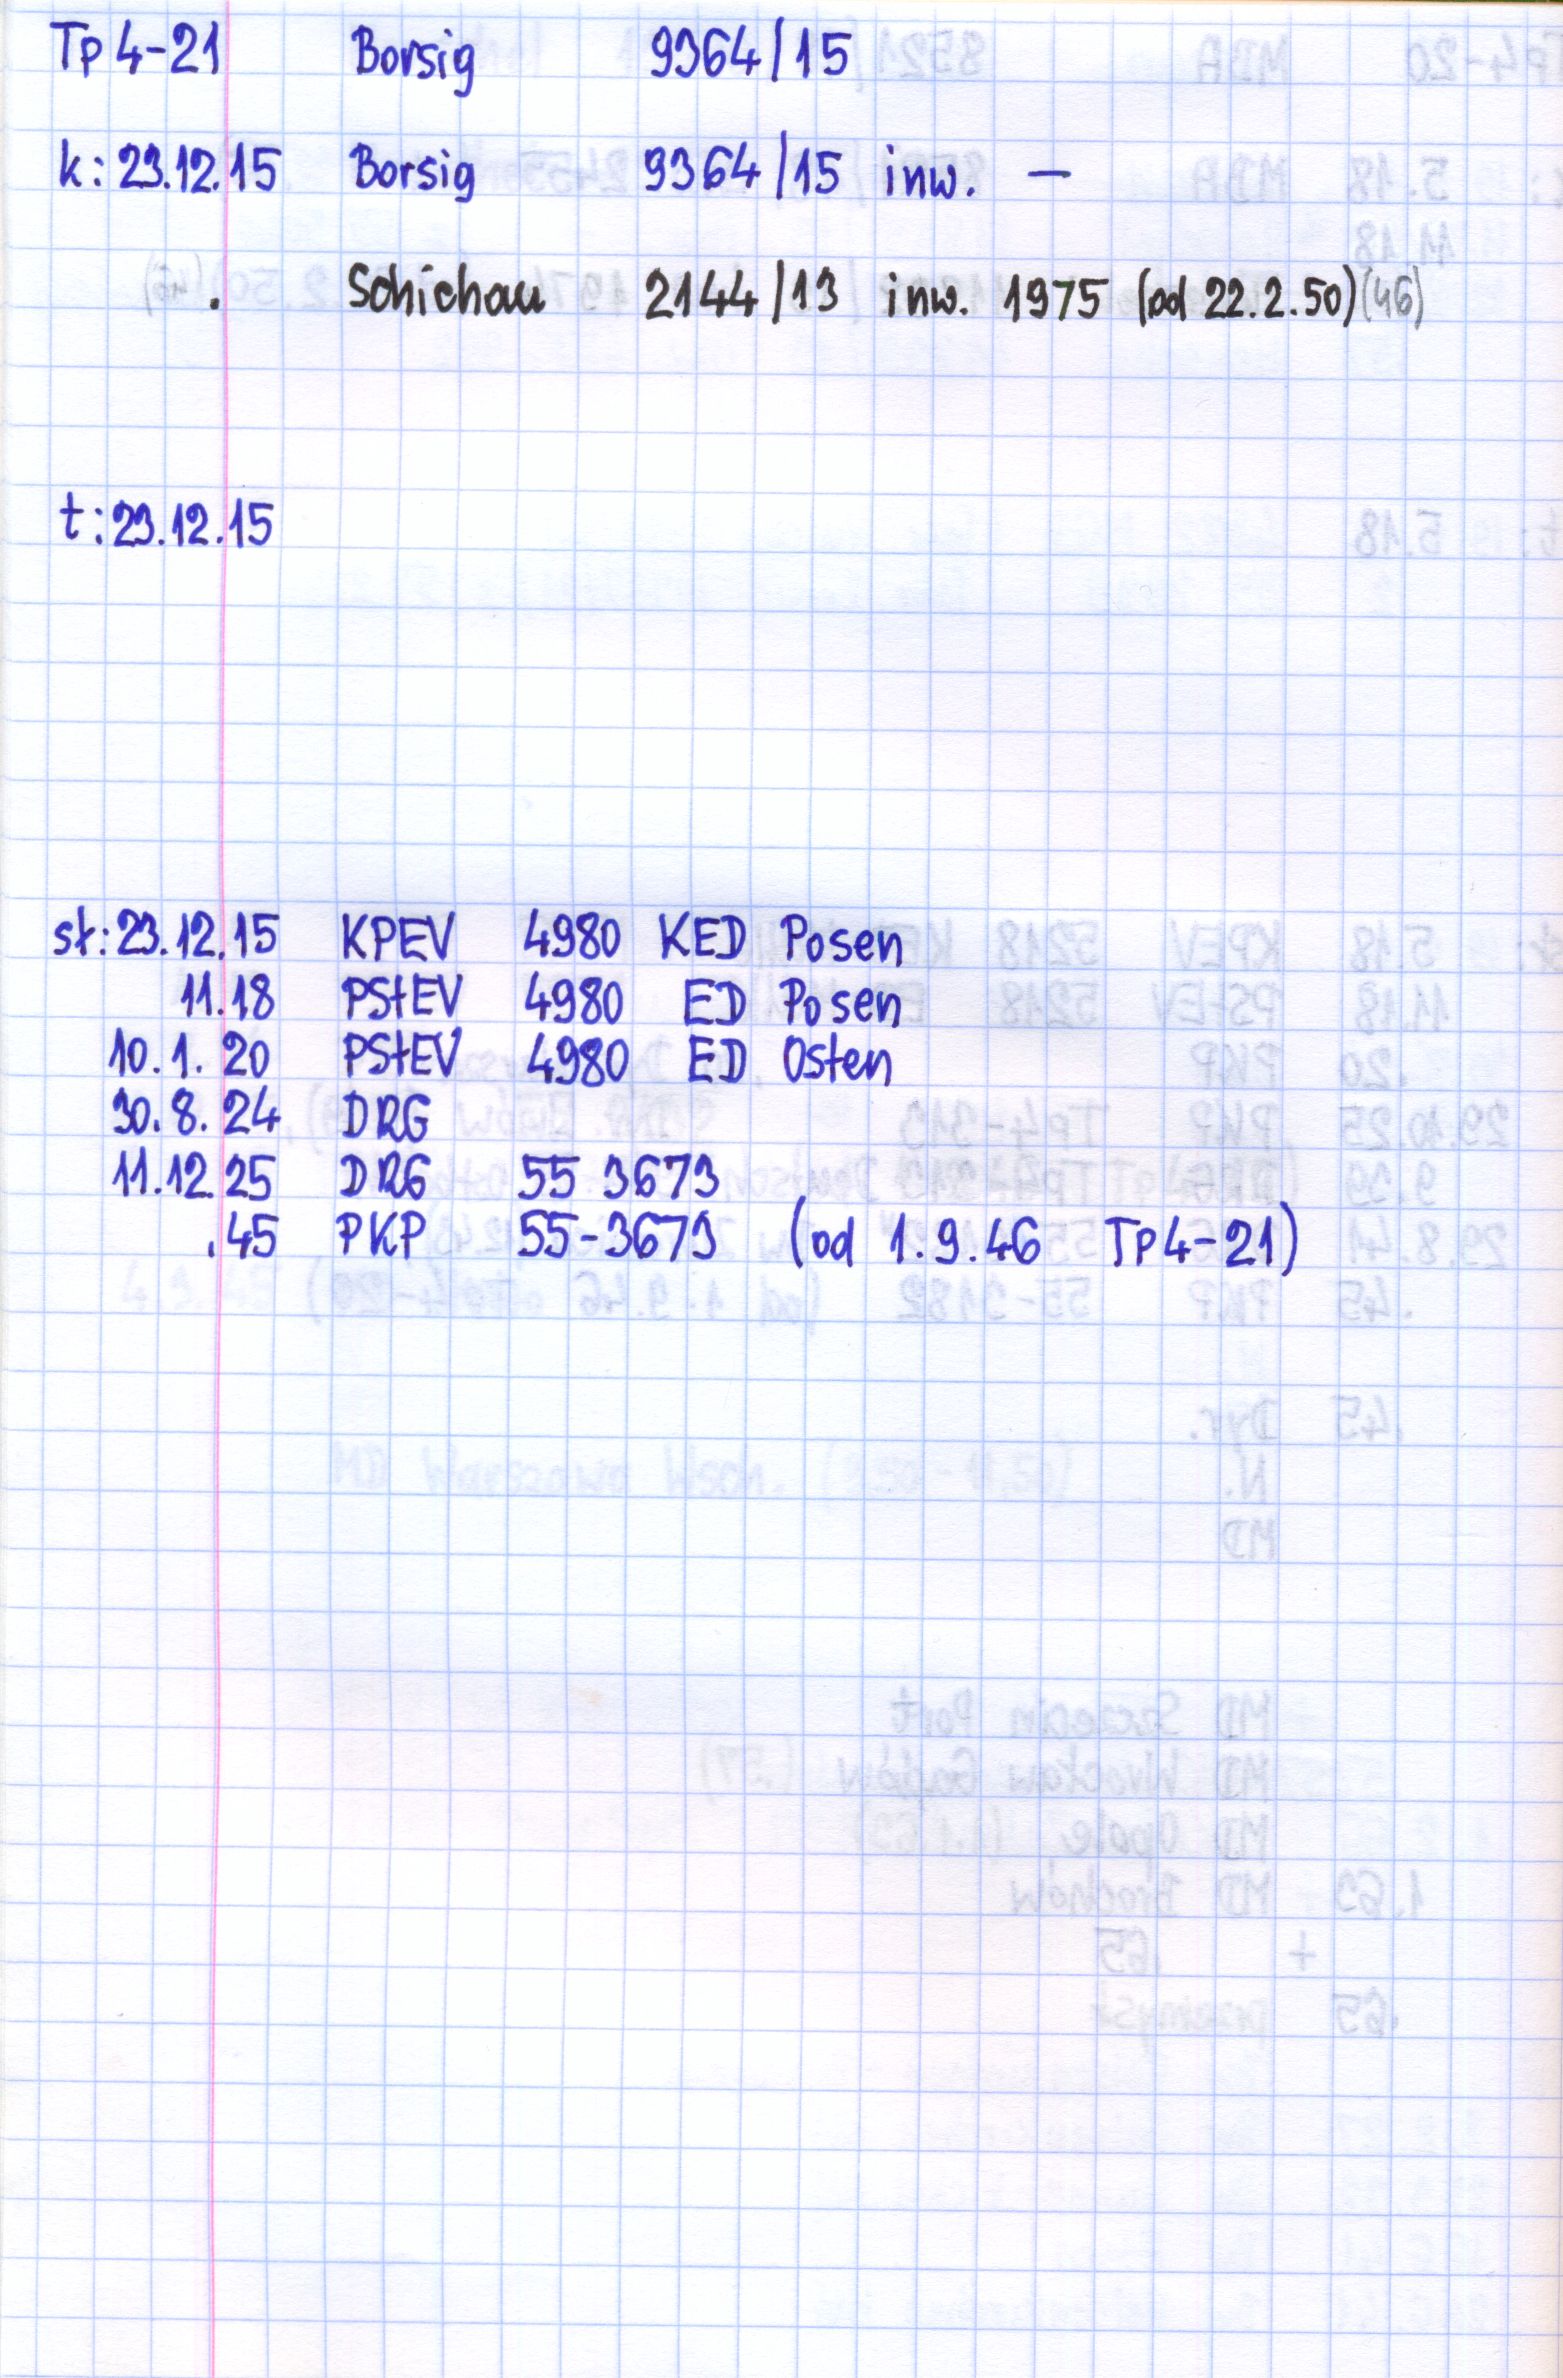 Tp 4-21 Borsig 9364/15
k: 23.12.15 Borsig 9364/15 inw. —
. Schichau 2144/13 inw. 1975 (od 22.2.50) (46)
t: 23.12.15
st: 23.12.15 KPEV 4980 KED Posen
11.18 PStEV 4980 ED Posen
10.1.20 PStEV 4980 ED Osten
30.8.24 DRG
11.12.25 DRG 55 3673
.45 PKP 55-3673 (od 1.9.46 Tp4-21)